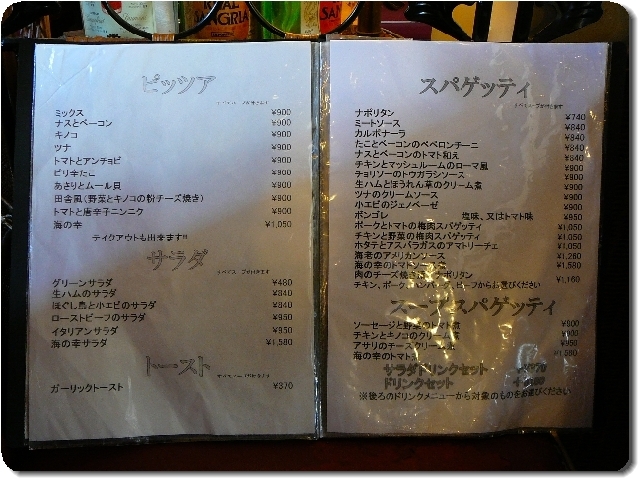 ROYAL
SANGRIA
SAN
ピッツア
ミックス ¥900
ナスとベーコン ¥900
キノコ ¥900
ツナ ¥900
トマトとアンチョビ ¥900
ピリ辛たこ ¥900
あさりとムール貝 ¥900
田舎風(野菜とキノコの粉チーズ焼き) ¥900
トマトと唐辛子ニンニク ¥900
海の幸 ¥1,050
テイクアウトも出来ます!!
サラダ
グリーンサラダ ¥480
生ハムのサラダ ¥840
ほぐし鳥と小エビのサラダ ¥840
ローストビーフのサラダ ¥950
イタリアンサラダ ¥950
海の幸サラダ ¥1,580
トースト
ガーリックトースト ¥370
スパゲッティ
ナポリタン ¥740
ミートソース ¥840
カルボナーラ ¥840
たことベーコンのペペロンチーニ ¥840
ナスとベーコンのトマト和え ¥840
チキンとマッシュルームのローマ風 ¥900
チョリソーのトウガラシソース ¥900
生ハムとほうれん草のクリーム煮 ¥900
ツナのクリームソース ¥900
小エビのジェノベーゼ ¥900
ボンゴレ 塩味、又はトマト味 ¥950
ポークとトマトの梅肉スパゲッティ ¥1,050
チキンと野菜の梅肉スパゲッティ ¥1,050
ホタテとアスパラガスのアマトリーチェ ¥1,050
海老のアメリカンソース ¥1,260
海の幸のトマトソース煮 ¥1,580
肉のチーズ焼き ナポリタン ¥1,160
チキン、ポーク、ハンバーグ、ビーフからお選びください
スープスパゲッティ
ソーセージと野菜のトマト煮 ¥900
チキンとキノコのクリーム煮 ¥900
アサリのチーズクリーム煮 ¥950
海の幸のトマト ¥1,580
サラダドリンクセット
ドリンクセット
※後ろのドリンクメニューから対象のものをお選びください